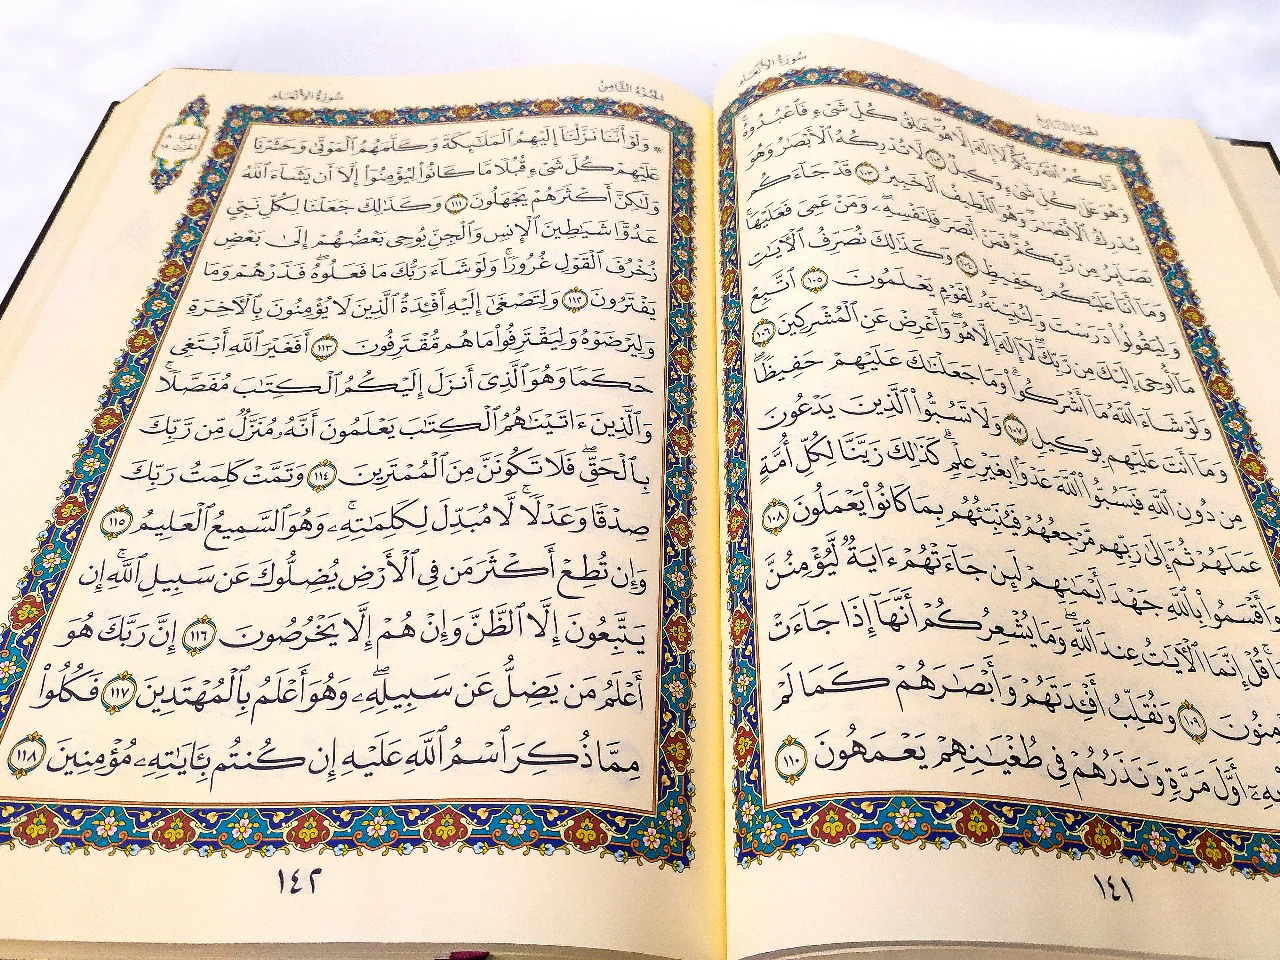 سُورَةُ الأَنْعَامِ
ذَٰلِكُمُ ٱللَّهُ رَبُّكُمْۖ لَآ إِلَٰهَ إِلَّا هُوَۖ خَٰلِقُ كُلِّ شَىْءٍ فَٱعْبُدُوهُۚ
وَهُوَ عَلَىٰ كُلِّ شَىْءٍ وَكِيلٌ ١٠٢ لَّا تُدْرِكُهُ ٱلْأَبْصَٰرُ وَهُوَ
يُدْرِكُ ٱلْأَبْصَٰرَۖ وَهُوَ ٱللَّطِيفُ ٱلْخَبِيرُ ١٠٣ قَدْ جَآءَكُم
بَصَآئِرُ مِن رَّبِّكُمْۖ فَمَنْ أَبْصَرَ فَلِنَفْسِهِۦۖ وَمَنْ عَمِىَ فَعَلَيْهَاۚ
وَمَآ أَنَا۠ عَلَيْكُم بِحَفِيظٍ ١٠٤ وَكَذَٰلِكَ نُصَرِّفُ ٱلْأَيَٰتِ
وَلِيَقُولُوا۟ دَرَسْتَ وَلِنُبَيِّنَهُۥ لِقَوْمٍ يَعْلَمُونَ ١٠٥ ٱتَّبِعْ
مَآ أُوحِىَ إِلَيْكَ مِن رَّبِّكَۖ لَآ إِلَٰهَ إِلَّا هُوَۖ وَأَعْرِضْ عَنِ ٱلْمُشْرِكِينَ ١٠٦
وَلَوْ شَآءَ ٱللَّهُ مَآ أَشْرَكُوا۟ۗ وَمَا جَعَلْنَٰكَ عَلَيْهِمْ حَفِيظًاۖ
وَمَآ أَنتَ عَلَيْهِم بِوَكِيلٍ ١٠٧ وَلَا تَسُبُّوا۟ ٱلَّذِينَ يَدْعُونَ
مِن دُونِ ٱللَّهِ فَيَسُبُّوا۟ ٱللَّهَ عَدْوًۢا بِغَيْرِ عِلْمٍۗ كَذَٰلِكَ زَيَّنَّا لِكُلِّ أُمَّةٍ
عَمَلَهُمْ ثُمَّ إِلَىٰ رَبِّهِم مَّرْجِعُهُمْ فَيُنَبِّئُهُم بِمَا كَانُوا۟ يَعْمَلُونَ ١٠٨
وَأَقْسَمُوا۟ بِٱللَّهِ جَهْدَ أَيْمَٰنِهِمْ لَئِن جَآءَتْهُمْ ءَايَةٌ لَّيُؤْمِنُنَّ
قُلْ إِنَّمَا ٱلْأَيَٰتُ عِندَ ٱللَّهِۖ وَمَا يُشْعِرُكُمْ أَنَّهَآ إِذَا جَآءَتْ
١٠٩ وَنُقَلِّبُ أَفْـِٔدَتَهُمْ وَأَبْصَٰرَهُمْ كَمَا لَمْ
أَوَّلَ مَرَّةٍ وَنَذَرُهُمْ فِى طُغْيَٰنِهِمْ يَعْمَهُونَ ١١٠
١٤١
الجُزْءُ الثَّامِنُ
سُورَةُ الأَنْعَامِ
۞ وَلَوْ أَنَّنَا نَزَّلْنَآ إِلَيْهِمُ ٱلْمَلَٰٓئِكَةَ وَكَلَّمَهُمُ ٱلْمَوْتَىٰ وَحَشَرْنَا
عَلَيْهِمْ كُلَّ شَىْءٍ قُبُلًا مَّا كَانُوا۟ لِيُؤْمِنُوٓا۟ إِلَّآ أَن يَشَآءَ ٱللَّهُ
وَلَٰكِنَّ أَكْثَرَهُمْ يَجْهَلُونَ ١١١ وَكَذَٰلِكَ جَعَلْنَا لِكُلِّ نَبِىٍّ
عَدُوًّا شَيَٰطِينَ ٱلْإِنسِ وَٱلْجِنِّ يُوحِى بَعْضُهُمْ إِلَىٰ بَعْضٍ
زُخْرُفَ ٱلْقَوْلِ غُرُورًاۚ وَلَوْ شَآءَ رَبُّكَ مَا فَعَلُوهُۖ فَذَرْهُمْ وَمَا
يَفْتَرُونَ ١١٢ وَلِتَصْغَىٰٓ إِلَيْهِ أَفْـِٔدَةُ ٱلَّذِينَ لَا يُؤْمِنُونَ بِٱلْأَخِرَةِ
وَلِيَرْضَوْهُ وَلِيَقْتَرِفُوا۟ مَا هُم مُّقْتَرِفُونَ ١١٣ أَفَغَيْرَ ٱللَّهِ أَبْتَغِى
حَكَمًا وَهُوَ ٱلَّذِىٓ أَنزَلَ إِلَيْكُمُ ٱلْكِتَٰبَ مُفَصَّلًاۚ
وَٱلَّذِينَ ءَاتَيْنَٰهُمُ ٱلْكِتَٰبَ يَعْلَمُونَ أَنَّهُۥ مُنَزَّلٌ مِّن رَّبِّكَ
بِٱلْحَقِّۖ فَلَا تَكُونَنَّ مِنَ ٱلْمُمْتَرِينَ ١١٤ وَتَمَّتْ كَلِمَتُ رَبِّكَ
صِدْقًا وَعَدْلًاۚ لَّا مُبَدِّلَ لِكَلِمَٰتِهِۦۚ وَهُوَ ٱلسَّمِيعُ ٱلْعَلِيمُ ١١٥
وَإِن تُطِعْ أَكْثَرَ مَن فِى ٱلْأَرْضِ يُضِلُّوكَ عَن سَبِيلِ ٱللَّهِۚ إِن
يَتَّبِعُونَ إِلَّا ٱلظَّنَّ وَإِنْ هُمْ إِلَّا يَخْرُصُونَ ١١٦ إِنَّ رَبَّكَ هُوَ
أَعْلَمُ مَن يَضِلُّ عَن سَبِيلِهِۦۖ وَهُوَ أَعْلَمُ بِٱلْمُهْتَدِينَ ١١٧ فَكُلُوا۟
مِمَّا ذُكِرَ ٱسْمُ ٱللَّهِ عَلَيْهِ إِن كُنتُم بِـَٔايَٰتِهِۦ مُؤْمِنِينَ ١١٨
١٤٢